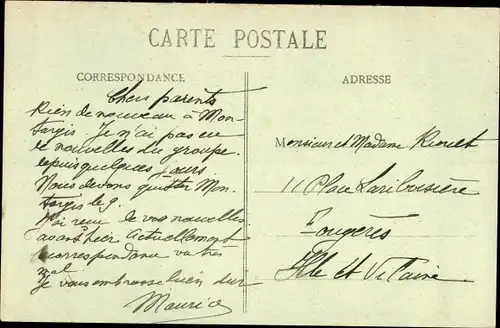 CARTE POSTALE
CORRESPONDANCE
Chers parents
Rien de nouveau à Mon-
targis Je n'ai pas eu
de nouvelles du groupe
depuis quelques jours
Nous devons quitter Mon-
targis le 9
J'ai reçu de vos nouvelles
avant hier Actuellement
la correspondance va très
mal
Je vous embrasse bien dur
Maurice
ADRESSE
Monsieur et Madame
11 Place Lariboisière
Fougères
Ille et Vilaine